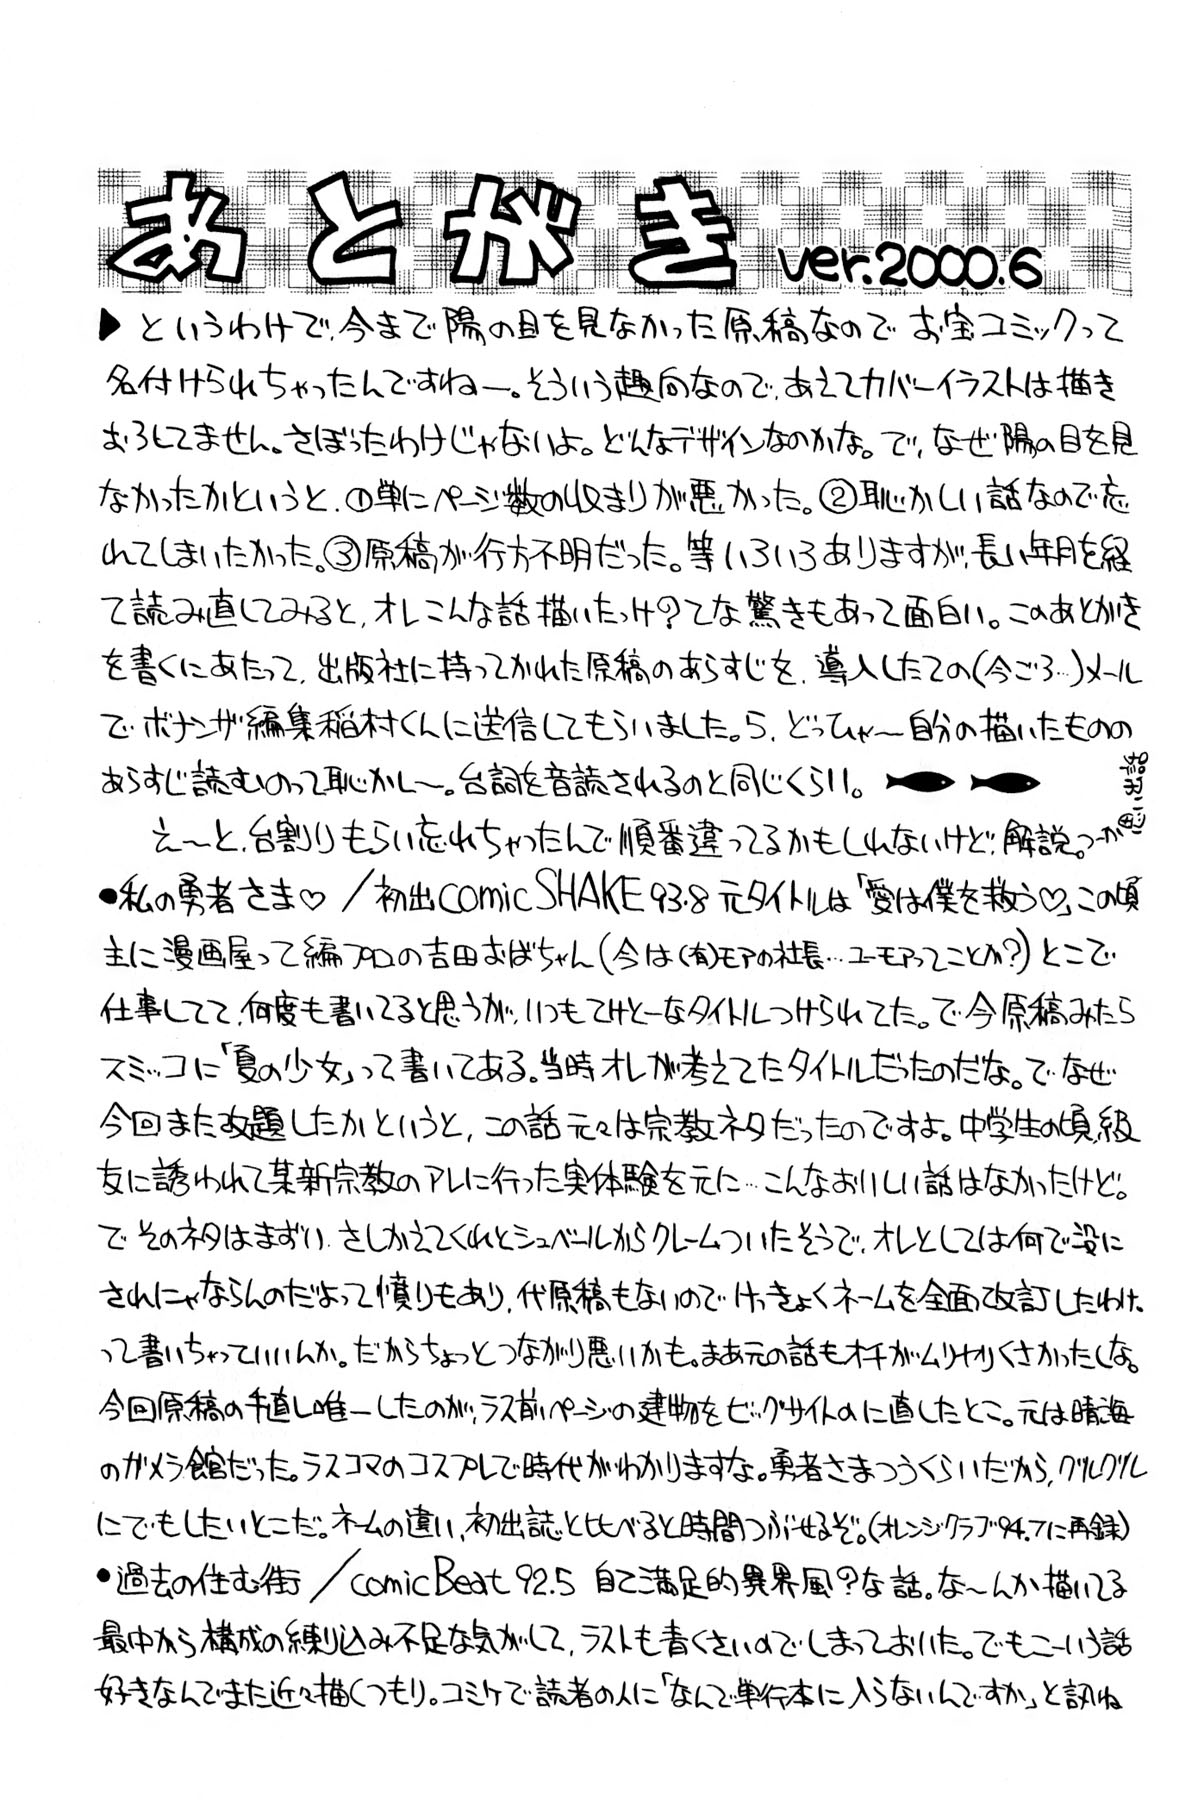 あとがき ver.2000.6
▶というわけで、今まで陽の目を見なかった原稿なのでお宝コミックって
名付けられちゃったんですねー。そういう趣向なので、あえてカバーイラストは描き
おろしてません。さぼったわけじゃないよ。どんなデザインなのかな。で、なぜ陽の目を見
なかったかというと、①単にページ数の収まりが悪かった。②恥かしい話なので忘
れてしまいたかった。③原稿が行方不明だった。等いろいろありますが、長い年月を経
て読み直してみると、オレこんな話描いたっけ?てな驚きもあって面白い。このあとがき
を書くにあたって、出版社に持ってかれた原稿のあらすじを、導入したての(今ごろ…)メール
でボナンザ編集稲村くんに送信してもらいました。ら、どっひゃ〜自分の描いたものの
あらすじ読むのって恥かし〜。台詞を音読されるのと同じくらい。
え〜と、台割りもらい忘れちゃったんで順番違ってるかもしれないけど、解説。つーか思い出話
●私の勇者さま♡/初出comic SHAKE 93.8 元タイトルは「愛は僕を救う♡」この頃
主に漫画屋って編プロの吉田おばちゃん(今は(有)モアの社長…ユーモアってことか?)とこで
仕事してて、何度も書いてると思うが、いつもてけとーなタイトルつけられてた。で今原稿みたら
スミッコに「夏の少女」って書いてある。当時オレが考えてたタイトルだったのだな。でなぜ
今回また改題したかというと、この話元々は宗教ネタだったのですよ。中学生の頃、級
友に誘われて某新宗教のアレに行った実体験を元に…こんなおいしい話はなかったけど。
でそのネタはまずい、さしかえてくれとシュベールからクレームついたそうで、オレとしては何で没に
されにゃならんのだよって憤りもあり、代原稿もないのでけっきょくネームを全面改訂したわけ。
って書いちゃっていいんか。だからちょっとつながり悪いかも。まあ元の話もオチがムリヤリくさかったしな。
今回原稿の手直し唯一したのが、ラス前ページの建物をビッグサイトのに直したとこ。元は晴海
のガメラ館だった。ラスコマのコスプレで時代がわかりますな。勇者さまつうくらいだから、グルグル
にでもしたいとこだ。ネームの違い、初出誌と比べると時間つぶせるぞ。(オレンジクラブ94.7に再録)
●過去の住む街/comic Beat 92.5 自己満足的異界風?な話。な〜んか描いてる
最中から構成の練り込み不足な気がして、ラストも青くさいのでしまっておいた。でもこーいう話
好きなんでまた近々描くつもり。コミケで読者の人に「なんで単行本に入らないんですか」と訊ね